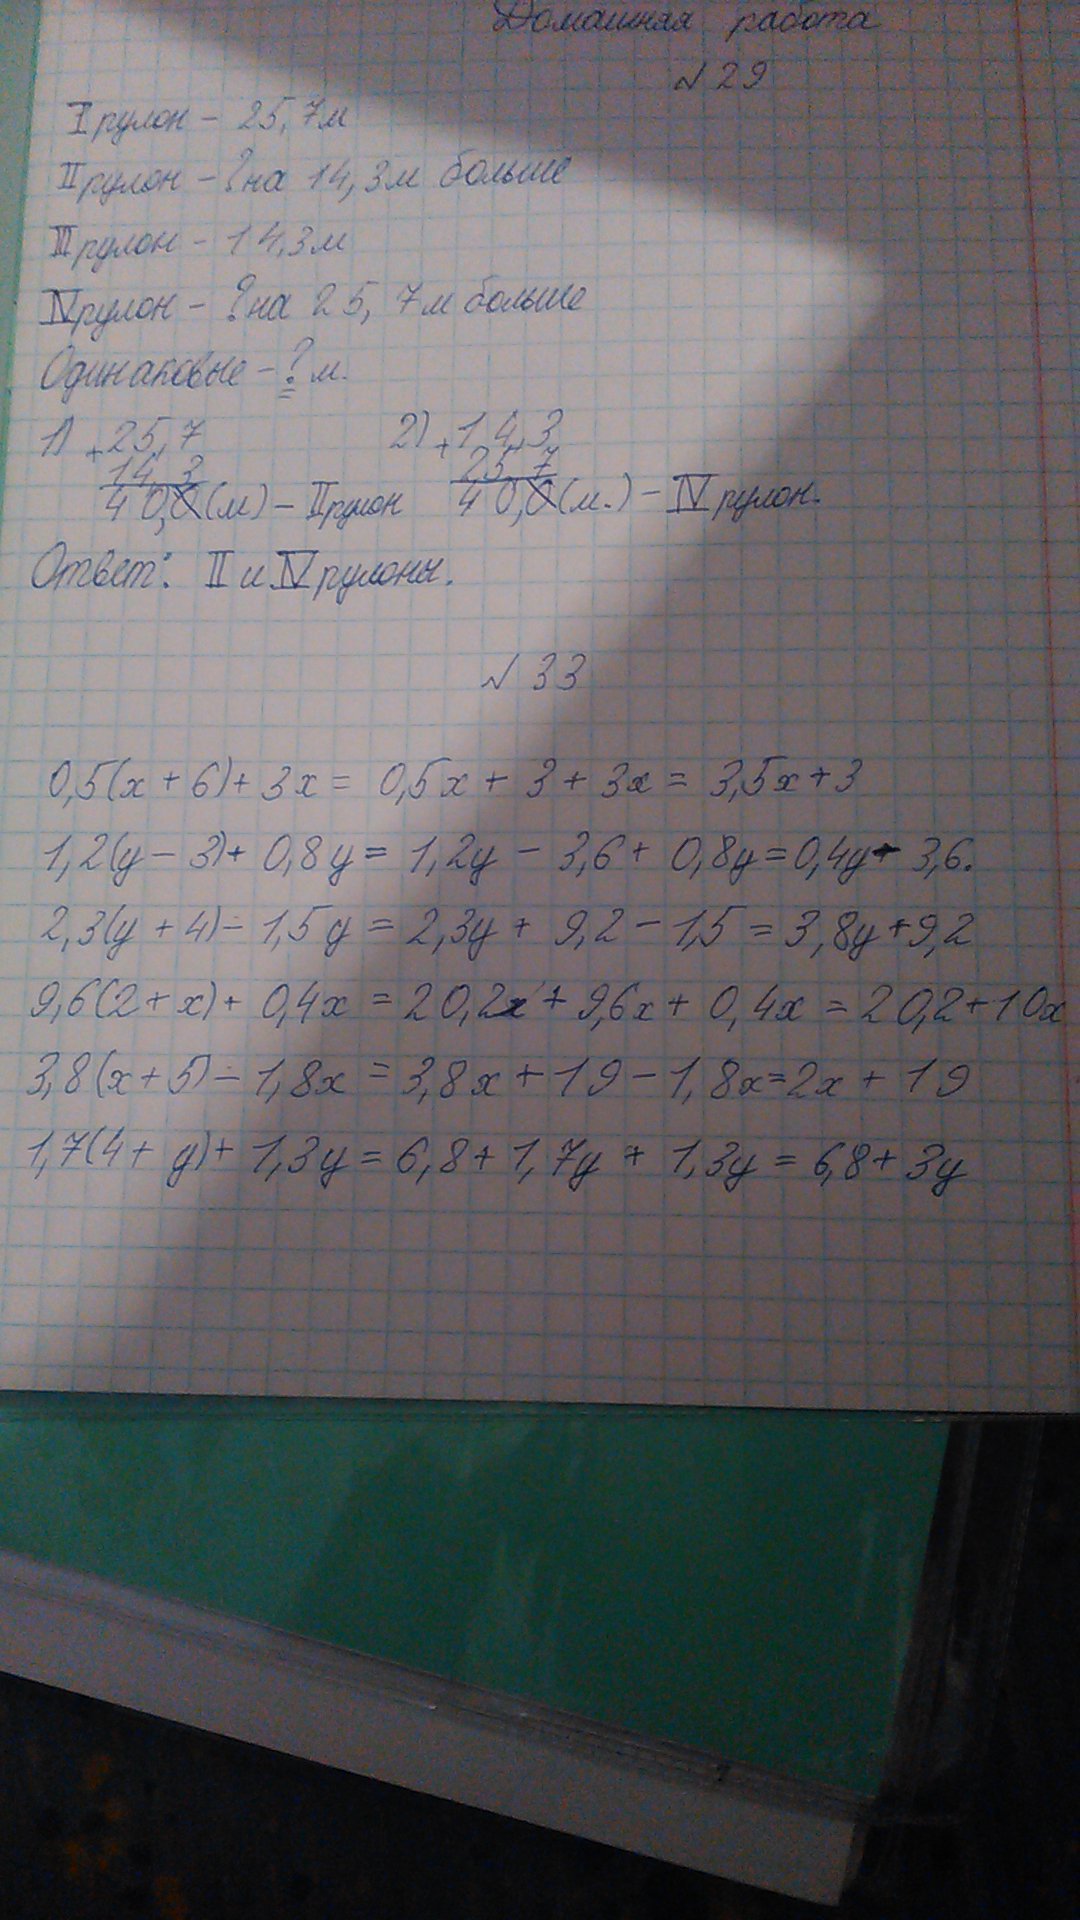 Домашняя работа
№ 29
I рулон - 25,7м
II рулон - ? на 14,3м больше
III рулон - 14,3м
IV рулон - ? на 25,7м больше
Одинаковые - ? м.
1) + 25,7 2) + 14,3
14,3 25,7
40,0(м) - II рулон 40,0(м.) - IV рулон.
Ответ: II и IV рулоны.
№ 33
0,5(x + 6) + 3x = 0,5x + 3 + 3x = 3,5x + 3
1,2(y - 3) + 0,8y = 1,2y - 3,6 + 0,8y = 0,4y - 3,6.
2,3(y + 4) - 1,5y = 2,3y + 9,2 - 1,5 = 3,8y + 9,2
9,6(2 + x) + 0,4x = 20,2 + 9,6x + 0,4x = 20,2 + 10x
3,8(x + 5) - 1,8x = 3,8x + 19 - 1,8x = 2x + 19
1,7(4 + y) + 1,3y = 6,8 + 1,7y + 1,3y = 6,8 + 3y